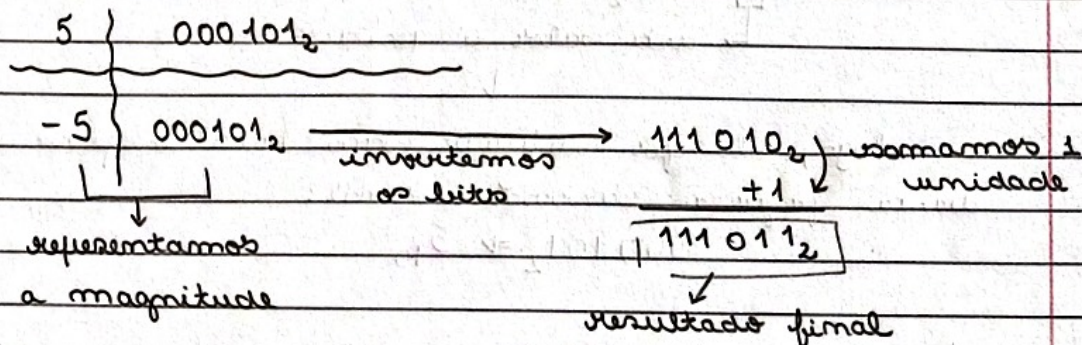 5 000101₂
-5 000101₂ → 111010₂ somamos 1
invertemos +1 unidade
os bits
111011₂
representamos
a magnitude
resultado final